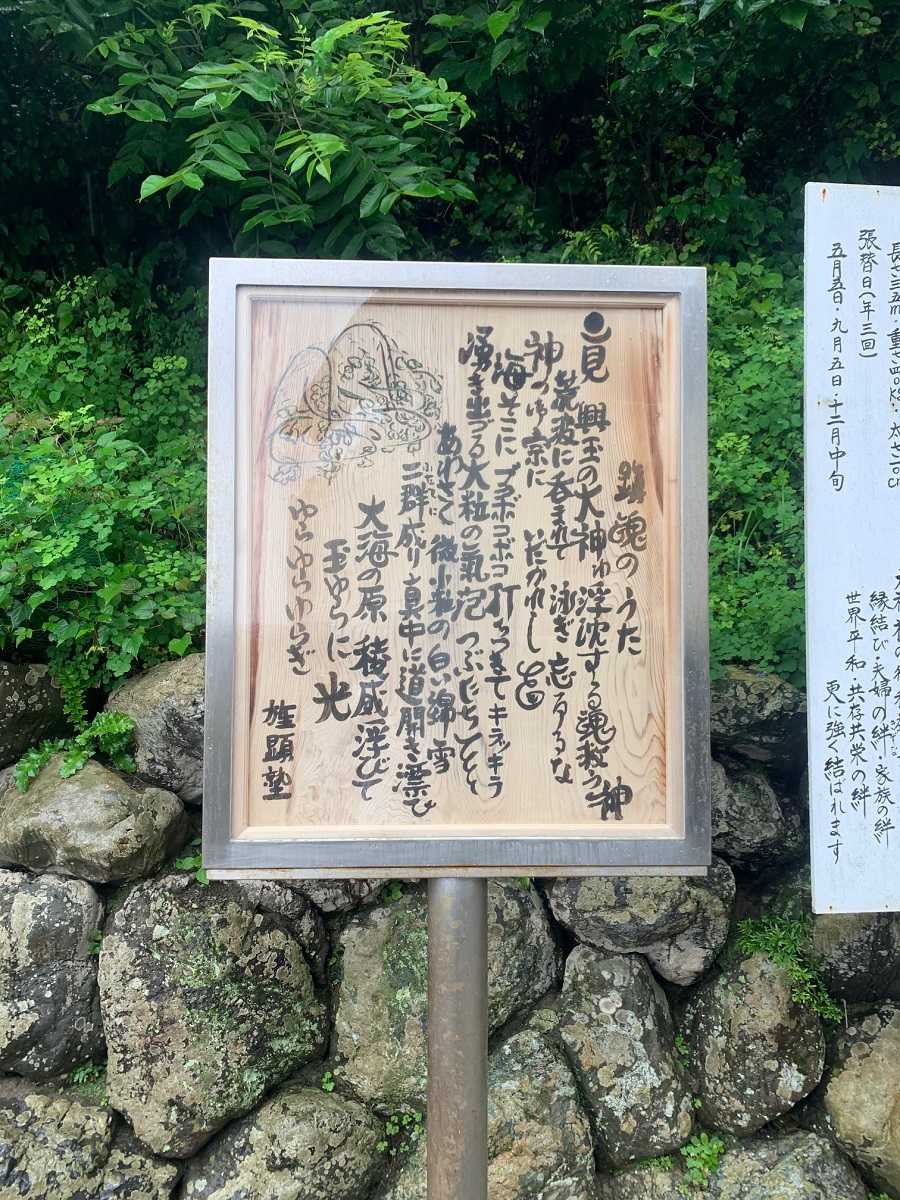 鎮魂のうた
二見 興玉の大神ゆ 浮沈する魂救う神
荒波に呑まれて 泳ぎ忘るるな
神つゆ京に いだかれし
海そこに ブクボコボコ 打ちつきて キラッキラ
湧き出づる大粒の氣泡 つぶだちとと
あわさく 微小粒の白い綿雪
二群成り真中に道開き漂ひ
ふたむれに
大海の原 稜威浮びて
玉ゆらに 光
ゆらゆらゆらぎ
旌顕塾
長さ三五m・重さ四〇kg・太さ一〇c
張替日(年三回)
五月五日・九月五日・十二月中旬
縁結び・夫婦の絆・家族の絆
世界平和・共存共栄の絆
更に強く結ばれます